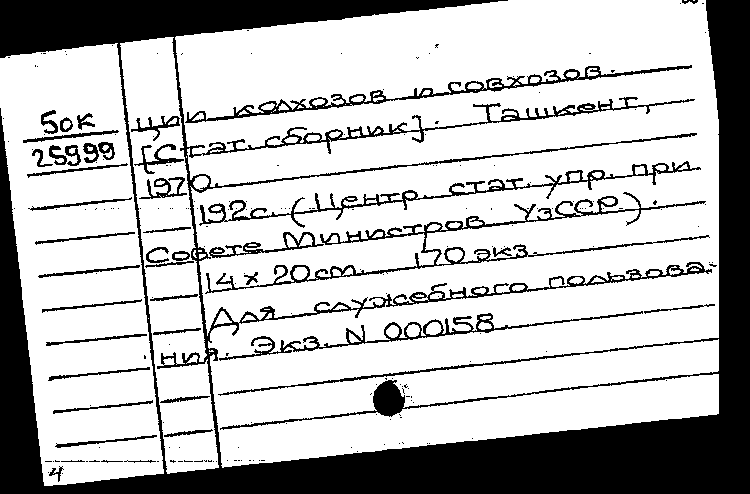 ции колхозов и совхозов.
50к
25999
[Стат. сборник]. Ташкент,
1970.
192с. (Центр. стат. упр. при
Совете Министров УзССР).
14 х 20 см. 170 экз.
Для служебного пользова-
ния. Экз. N 000158.
4